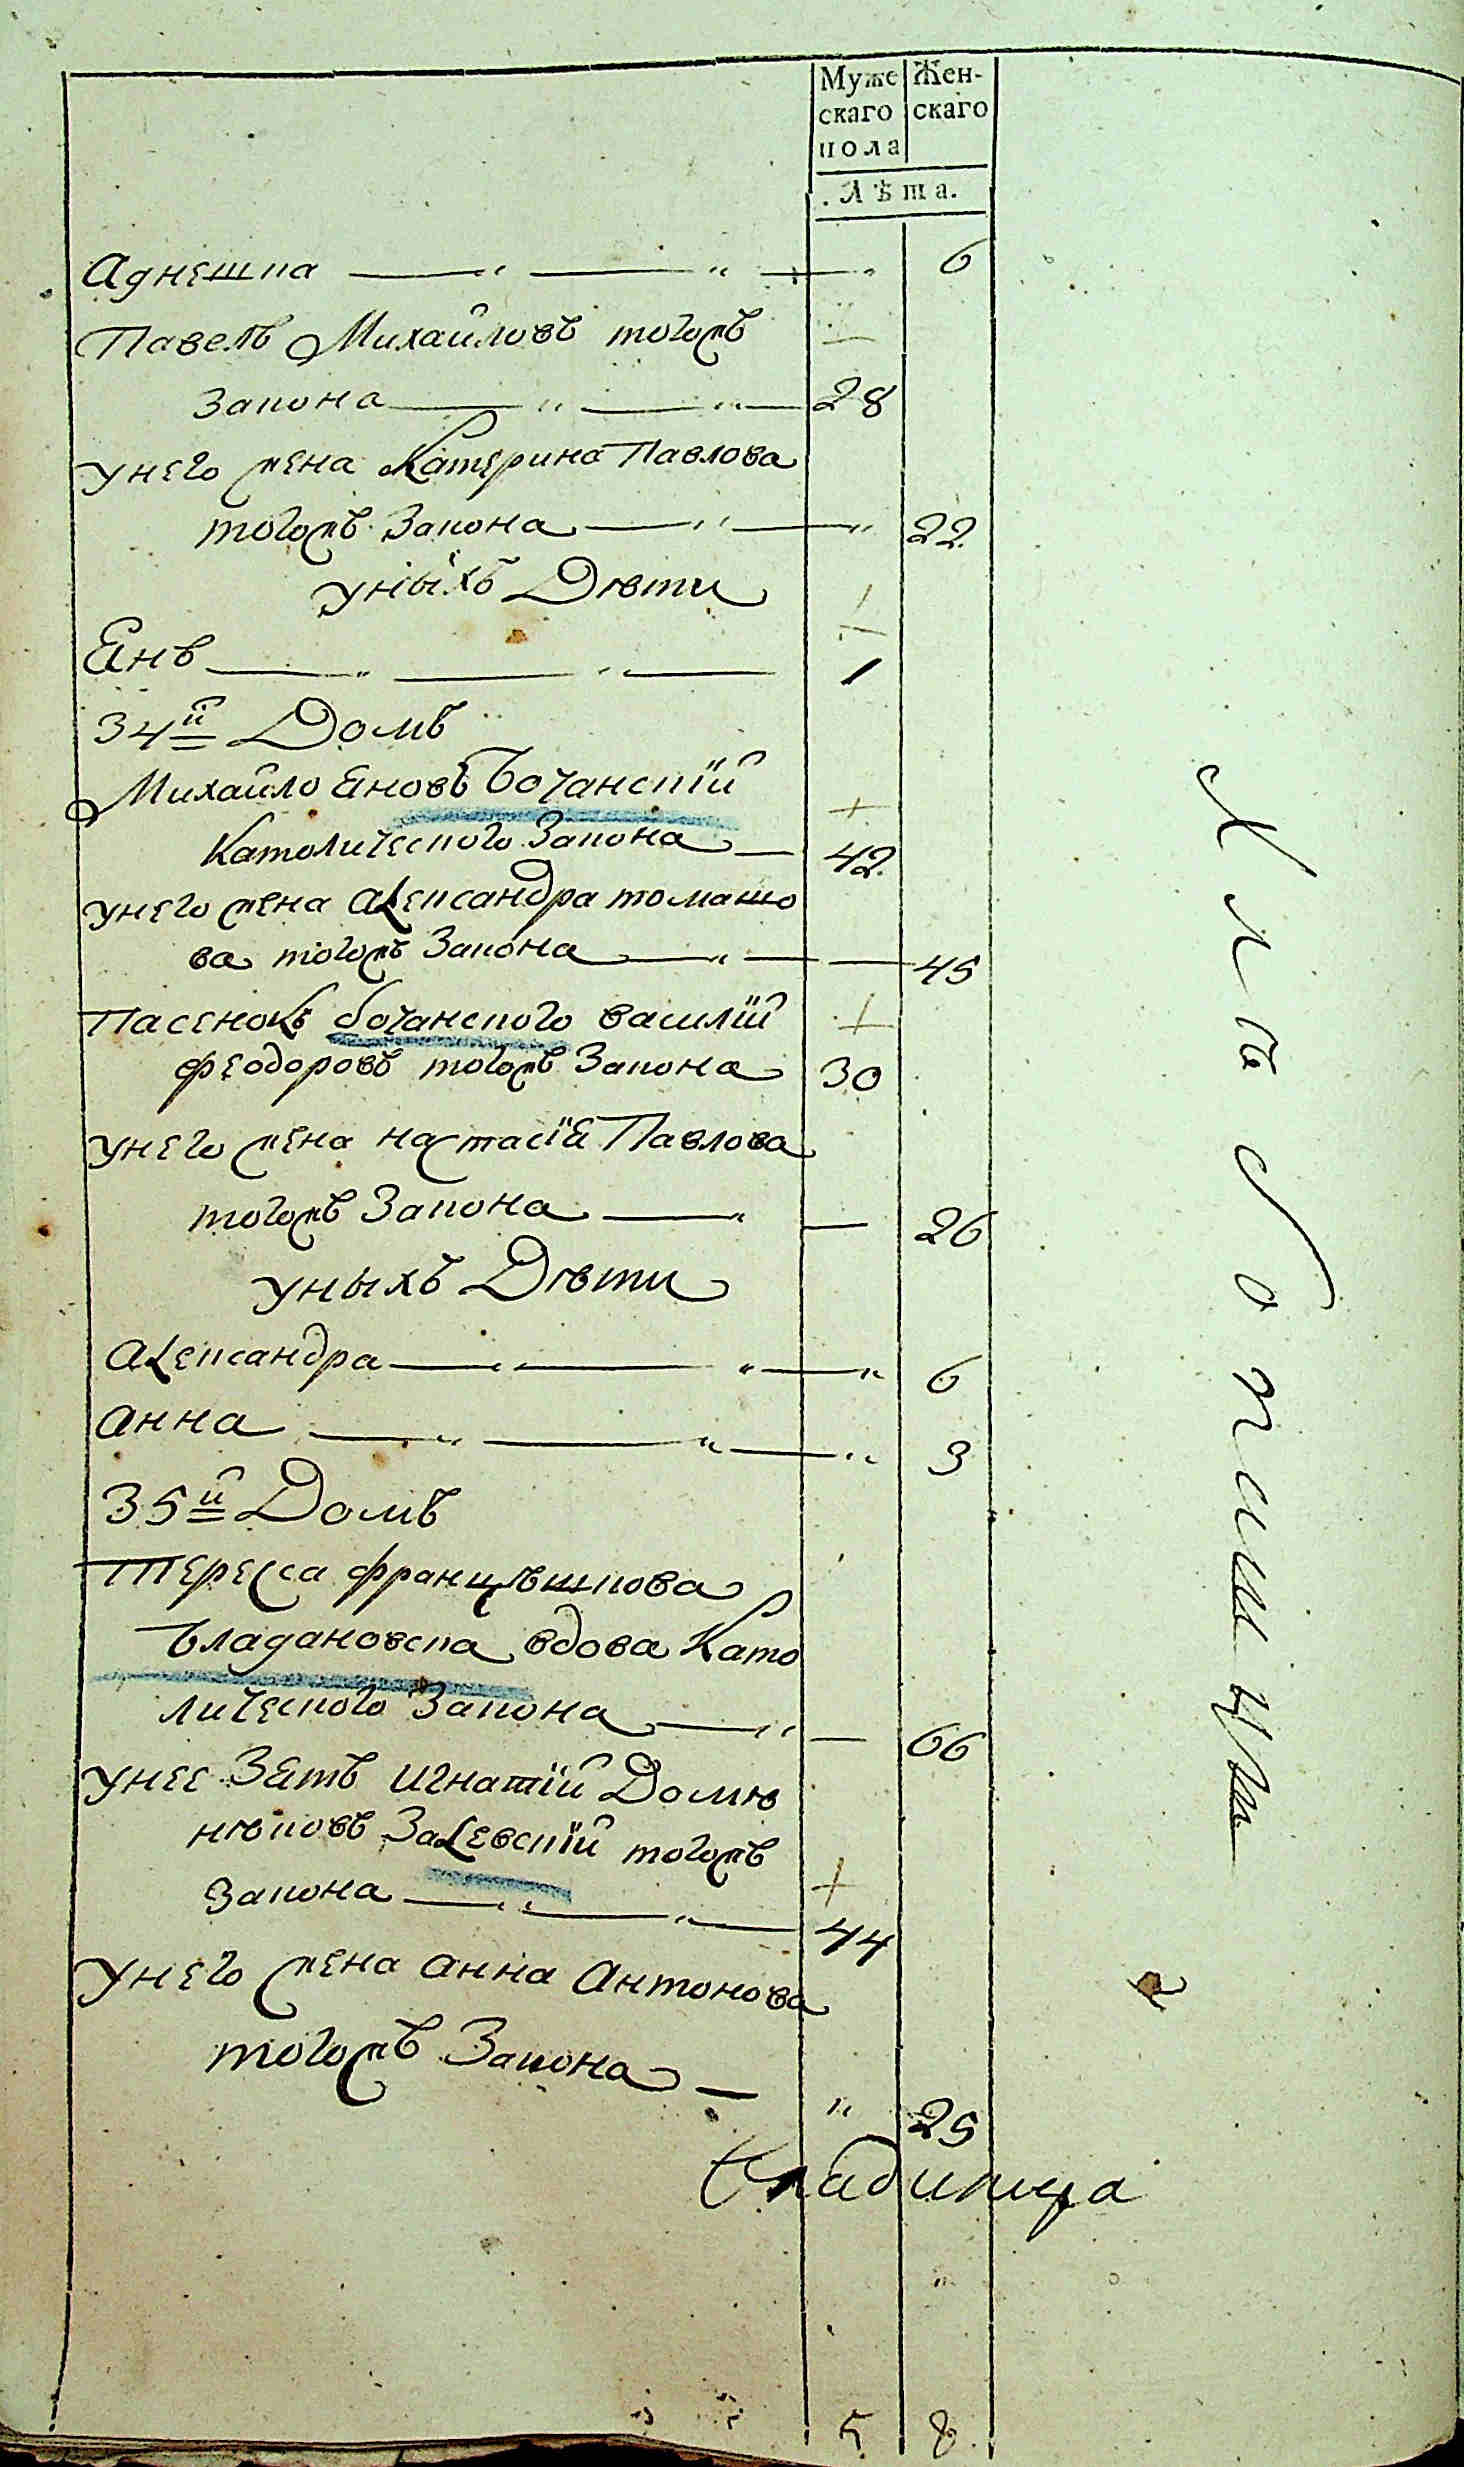 Муже Жен-
скаго скаго
пола
Лѣта.
Агнешка 6
Павелъ Михайловъ тогожъ
Закона 28
унего жена Катерина Павлова
тогожъ Закона 22
уныхъ Дѣти
Янъ 1
34й Домъ
Михайло Яновъ Бочанскій
Католического Закона 42
унего жена Александра томашо
ва тогожъ Закона 45
Пасенокъ бочанского василій
феодоровъ тогожъ Закона 30
унего жена настасія Павлова
тогожъ Закона 26
уныхъ Дѣти
Александра 6
анна 3
35й Домъ
Тересса францѣшкова
Владановска вдова Като
лического Закона 66
унее Зять игнатій Домѣ
нѣковъ Залевскій тогожъ
Закона 44
унего жена анна Антонова
тогожъ Закона 25
5 8